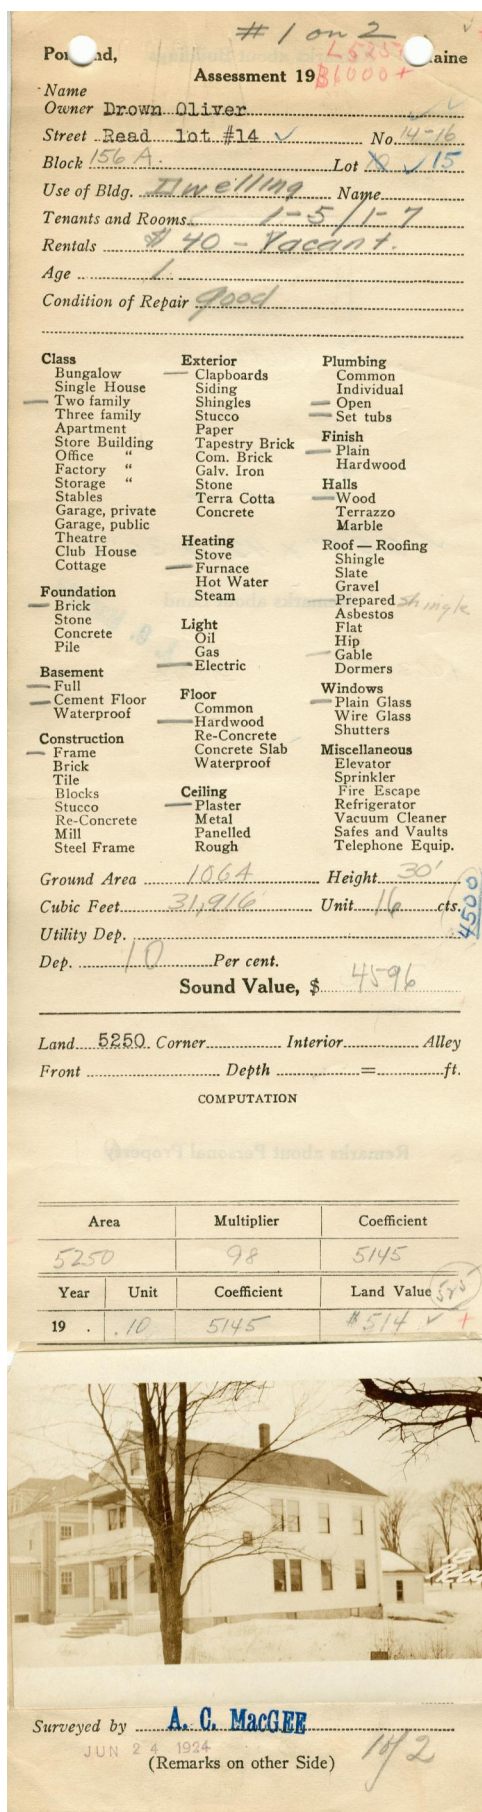 #1 on 2
Portland, Maine
Assessment 19
Name
Owner Drown Oliver
Street Read lot #14 No. 14-16
Block 156 A. Lot 15
Use of Bldg. Dwelling Name
Tenants and Rooms 1-5 / 1-7
Rentals $40 - Vacant.
Age 1
Condition of Repair good
Class
Bungalow
Single House
Two family
Three family
Apartment
Store Building
Office "
Factory "
Storage "
Stables
Garage, private
Garage, public
Theatre
Club House
Cottage
Foundation
Brick
Stone
Concrete
Pile
Basement
Full
Cement Floor
Waterproof
Construction
Frame
Brick
Tile
Blocks
Stucco
Re-Concrete
Mill
Steel Frame
Exterior
Clapboards
Siding
Shingles
Stucco
Paper
Tapestry Brick
Com. Brick
Galv. Iron
Stone
Terra Cotta
Concrete
Heating
Stove
Furnace
Hot Water
Steam
Light
Oil
Gas
Electric
Floor
Common
Hardwood
Re-Concrete
Concrete Slab
Waterproof
Ceiling
Plaster
Metal
Panelled
Rough
Plumbing
Common
Individual
Open
Set tubs
Finish
Plain
Hardwood
Halls
Wood
Terrazzo
Marble
Roof — Roofing
Shingle
Slate
Gravel
Prepared shingle
Asbestos
Flat
Hip
Gable
Dormers
Windows
Plain Glass
Wire Glass
Shutters
Miscellaneous
Elevator
Sprinkler
Fire Escape
Refrigerator
Vacuum Cleaner
Safes and Vaults
Telephone Equip.
Ground Area 1064 Height 30'
Cubic Feet 31,916 Unit 16 cts.
4500
Utility Dep.
Dep. 10 Per cent.
Sound Value, $ 4596
Land 5250 Corner Interior Alley
Front Depth = ft.
COMPUTATION
Area Multiplier Coefficient
5250 98 5145
Year Unit Coefficient Land Value 525
19 . .10 5145 $514
Surveyed by A. C. MacGEE
JUN 24 1924
(Remarks on other Side)
1 of 2